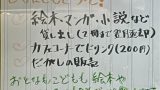 絵本・マンガ・小説など
貸し出し(2冊まで
カフェコーナでドリンク(200円)
だがしの販売
おとなもこどもも絵本や